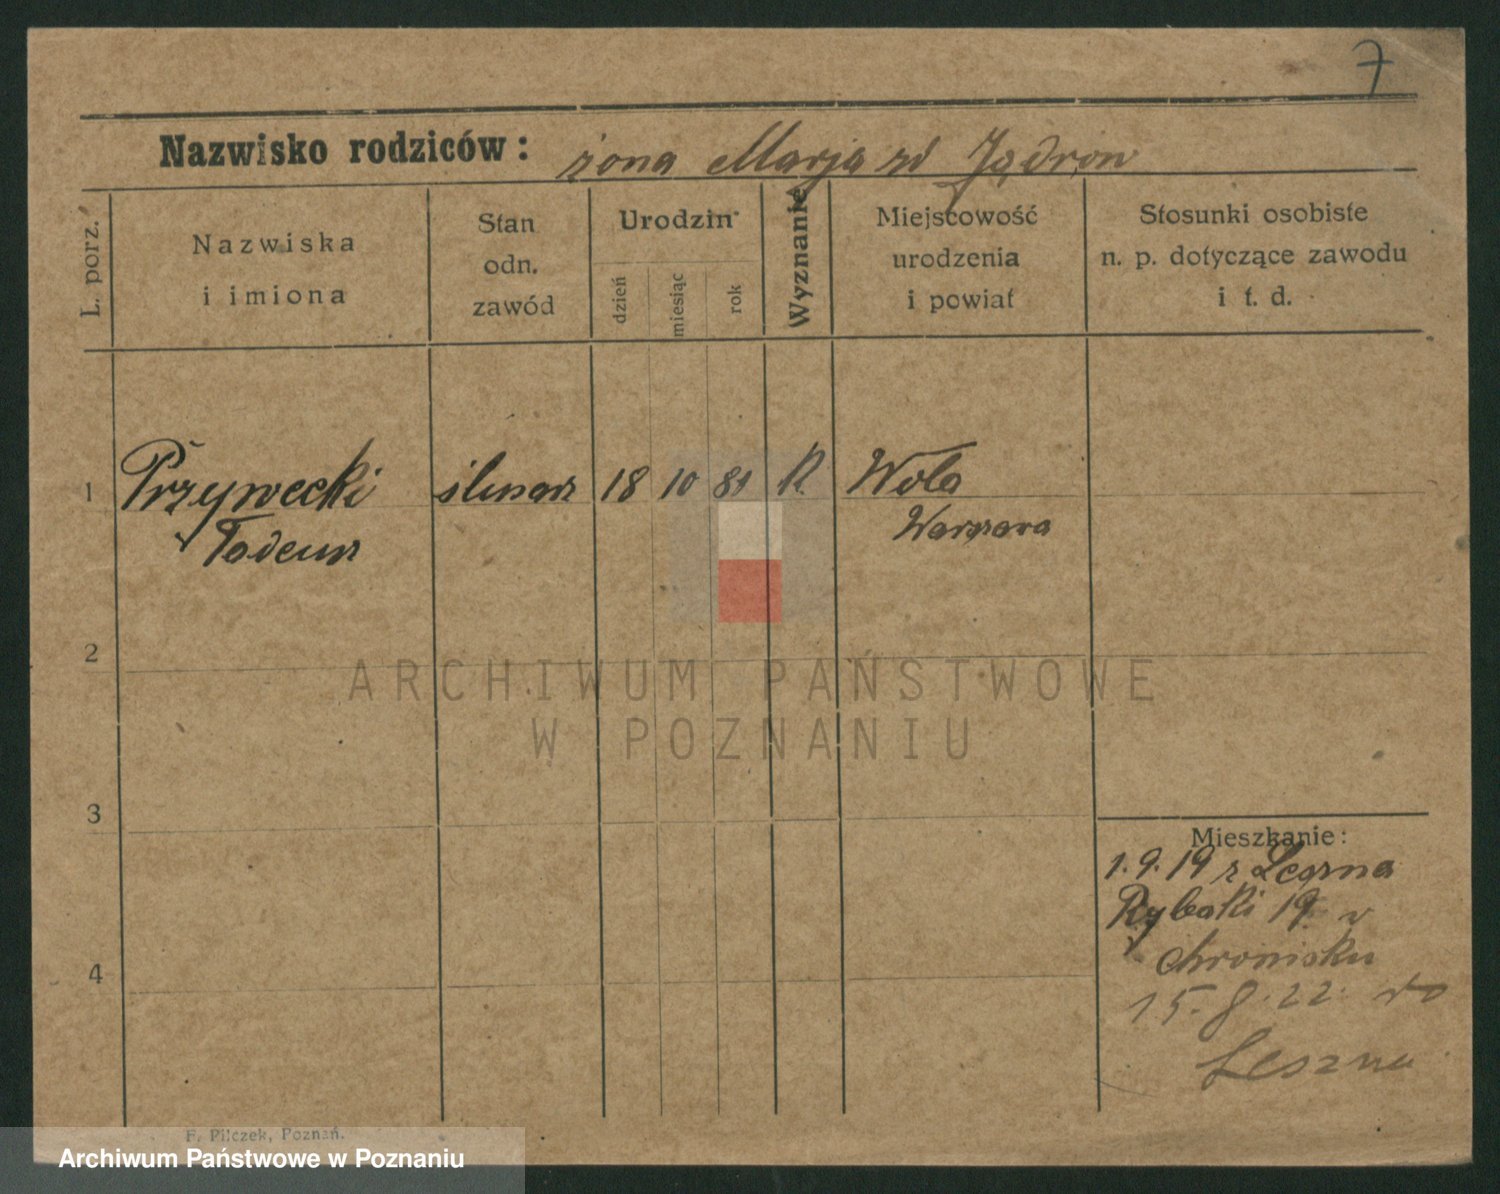 7
Nazwisko rodziców: żona Marja zd Jądron
L. porz.
Nazwiska
i imiona
Stan
odn.
zawód
Urodzin
dzień
miesiąc
rok
Wyznanie
Miejscowość
urodzenia
i powiat
Stosunki osobiste
n. p. dotyczące zawodu
i t. d.
1 Przywecki ślusarz 18 10 81 K. Wola
Tadeusz Warszawa
2
ARCHIWUM PAŃSTWOWE
W POZNANIU
3
Mieszkanie:
1.9.19 z Leszna
Rybaki 19 v
4
15.8.22 do
Leszna
F. Pilczek, Poznań.
Archiwum Państwowe w Poznaniu